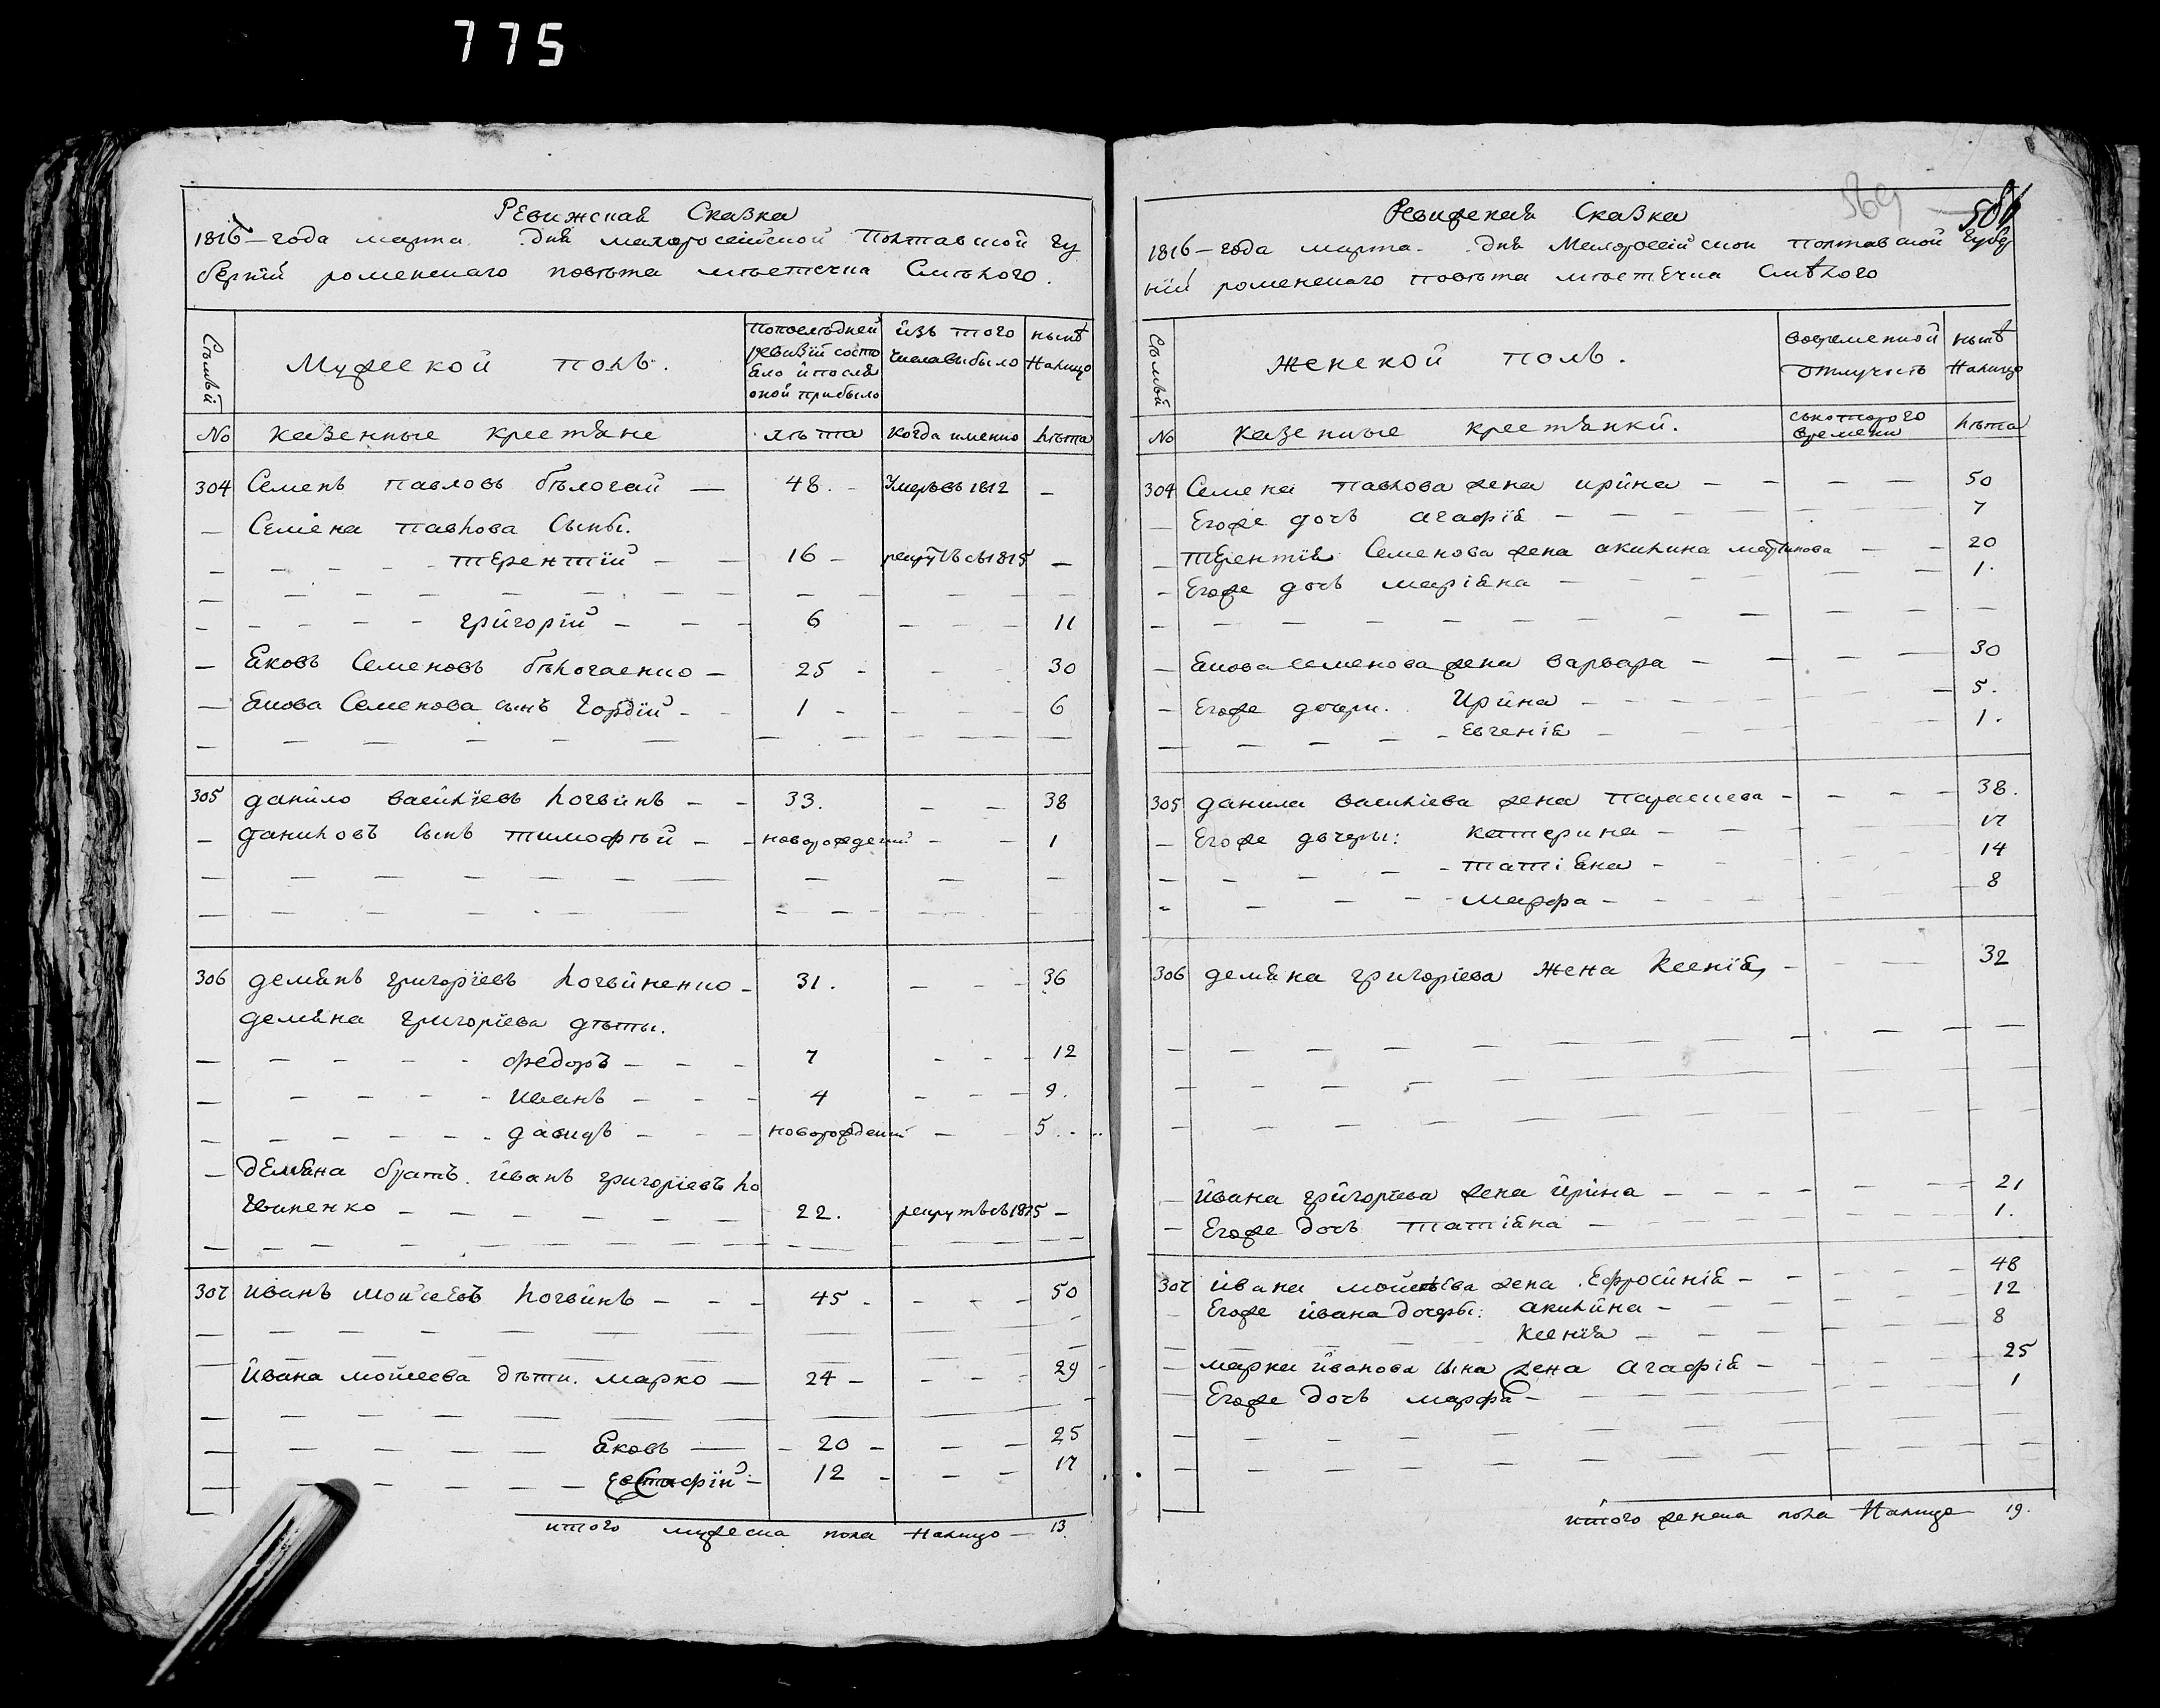 775
Ревижская Сказка
1816 — года марта дня малоросеійской Полтавской гу
берніи роменскаго повѣта мѣстечка Смѣлого.
Сѣмьи Мужеской полъ. попослѣдней ревизіи состо яло и после оной прибыло изъ того числа выбыло нынѣ Налицо
No казенные крестяне лѣта когда именно лѣта
304 Семенъ павловъ бѣлогай — 48. - Умеръ въ 1812 —
— Семена павлова сыны.
— терентій — 16 — рекрутъ съ 1815 —
— григорій — 6 — 11
— Яковъ Семеновъ бѣлогаенко — 25 - 30
— Якова Семенова сынъ гордій - 1 - 6
305 данило василіевъ логвинъ — 33. — 38
— даниловъ сынъ тимофѣй — новорожденій — 1
306 демянъ григоріевъ логвиненко — 31. — 36
демяна григоріева дѣты.
— федоръ — 7 - 12
— иванъ — 4 - 9.
— давидъ — новорожденій — 5
— демяна братъ. иванъ григоріевъ ло
гвиненко — 22. рекрутъ съ 1815 —
307 иванъ мойсеевъ логвинъ — 45 - 50
ивана мойсеева дѣти. марко — 24 — 29
— Яковъ — 20 — 25
— Евстафій — 12 - 17
итого мужеска пола Налицо — 13.
569 581
Ревижская Сказка
1816 — года марта. дня Малоросеійской полтавской губер
ніи роменскаго повѣта мѣстечка Смѣлого
Сѣмьи женской полъ. вовременной отлучкѣ нынѣ Налицо
No казенные крестянки. съкоторого времени лѣта
304 Семена павлова жена ирина — 50
— Егоже дочь агафія — 7
— терентія Семенова жена акилина мартинова — 20
— Егоже дочь маріяна — 1.
— Якова семенова жена варвара — 30
— Егоже дочери. Ирина — 5.
— Евгенія — 1.
305 данила василіева жена параскева — 38.
— Егоже дочеры: катерина — 17
— татіяна — 14
— марфа — 8
306 демяна григоріева жена Ксенія, — 32
— ивана григоріева жена ирина — 21
— Егоже дочь татіяна — 1.
307 ивана мойсѣева жена Ефросинія — 48
— Егоже ивана дочеры: акилина — 12
Ксенія — 8
— марка иванова сына жена агафія — 25
Егоже дочь марфа — 1
итого женска пола Налицо 19.